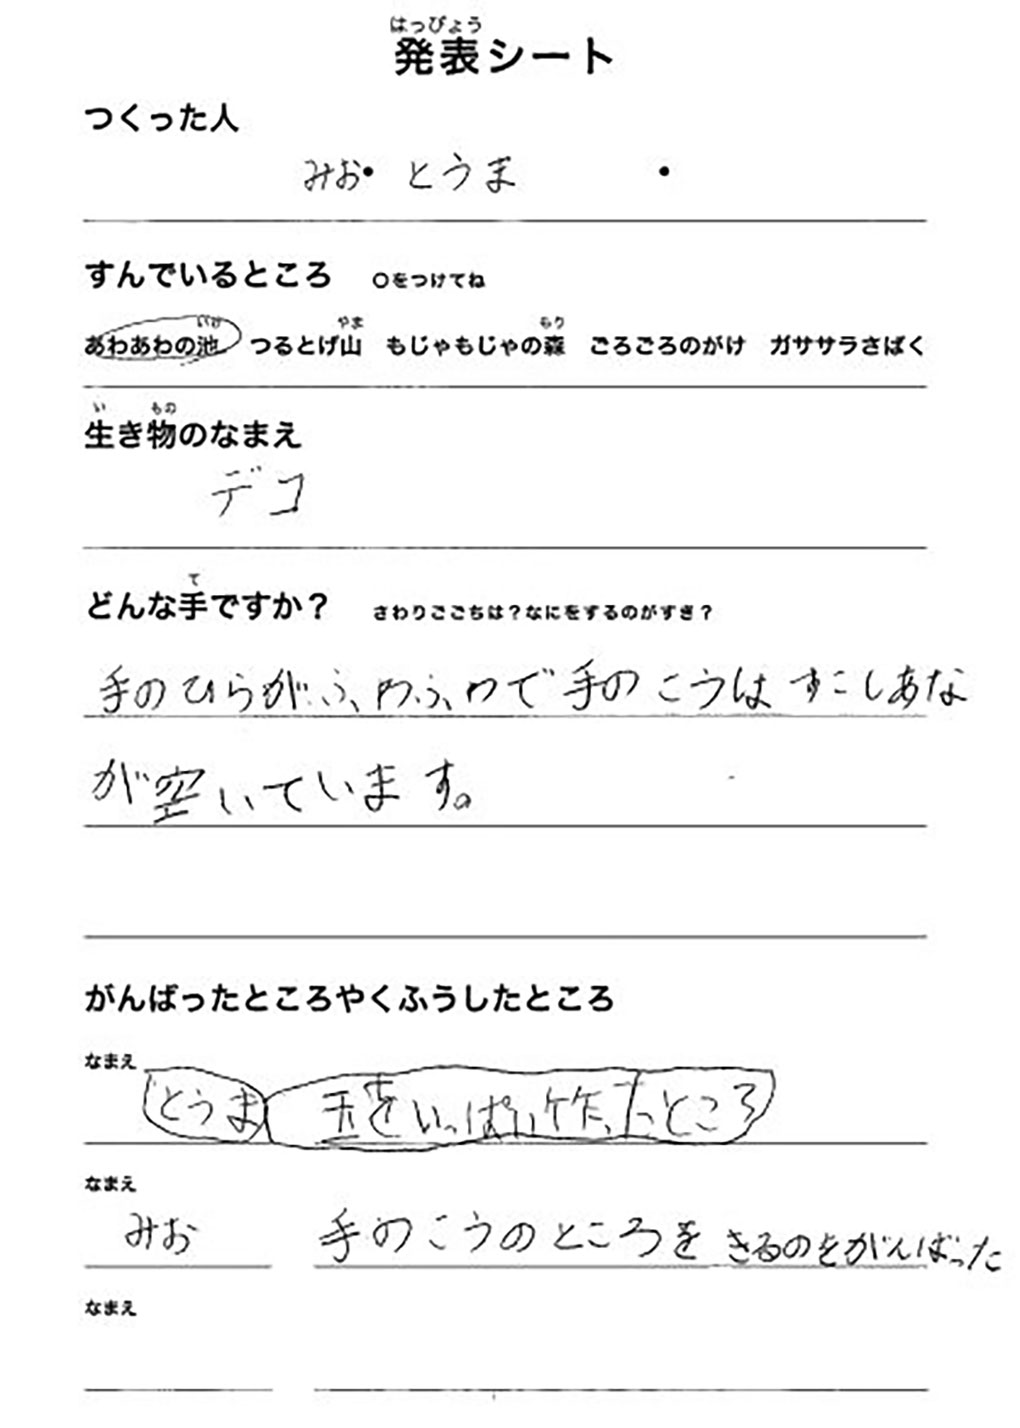 はっぴょう
発表シート
つくった人
みお・とうま ・
すんでいるところ ○をつけてね
いけ やま もり
あわあわの池 つるとげ山 もじゃもじゃの森 ごろごろのがけ ガササラさばく
い もの
生き物のなまえ
デコ
て
どんな手ですか？ さわりごこちは？なにをするのがすき？
手のひらがふわふわで手のこうはすこしあな
が空いています。
がんばったところやくふうしたところ
なまえ
とうま 玉をいっぱい作ったところ
なまえ
みお 手のこうのところをきるのをがんばった
なまえ